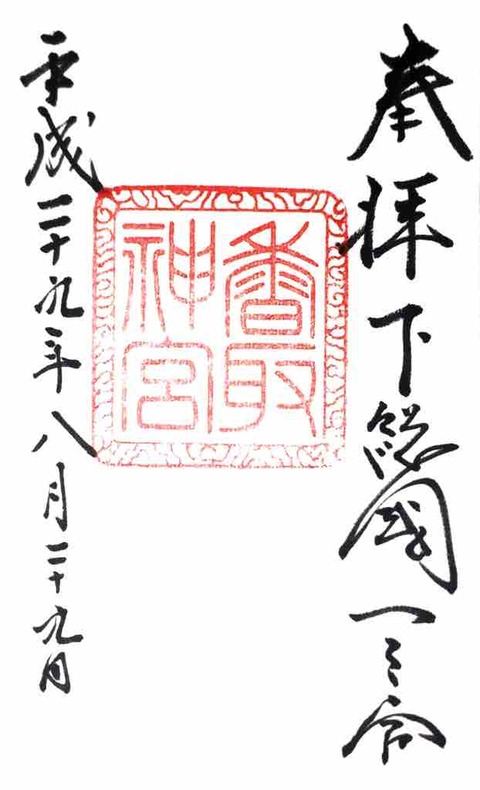 奉拝下総國一之宮
香取
神宮
平成二十九年八月二十九日